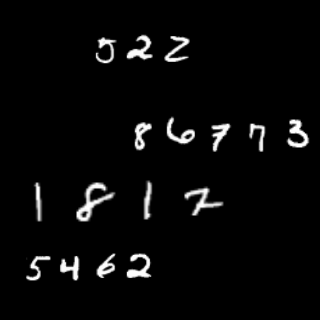 522
86773
1817
5462